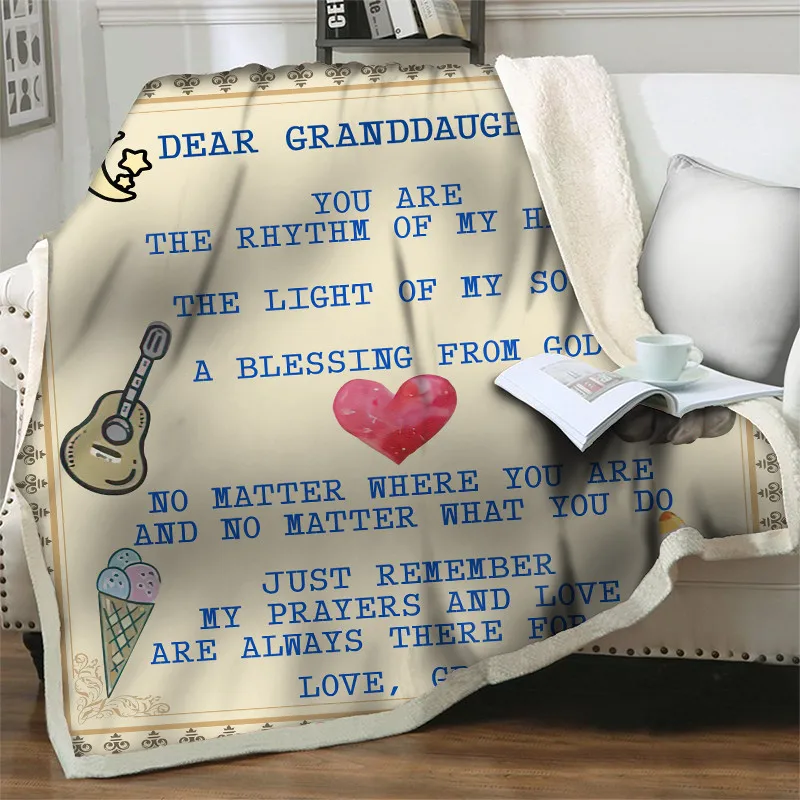 DEAR GRANDDAUG
YOU ARE
THE RHYTHM OF MY H
THE LIGHT OF MY SO
A BLESSING FROM GOD
NO MATTER WHERE YOU ARE
AND NO MATTER WHAT YOU DO
JUST REMEMBER
MY PRAYERS AND LOVE
ARE ALWAYS THERE FO
LOVE, G